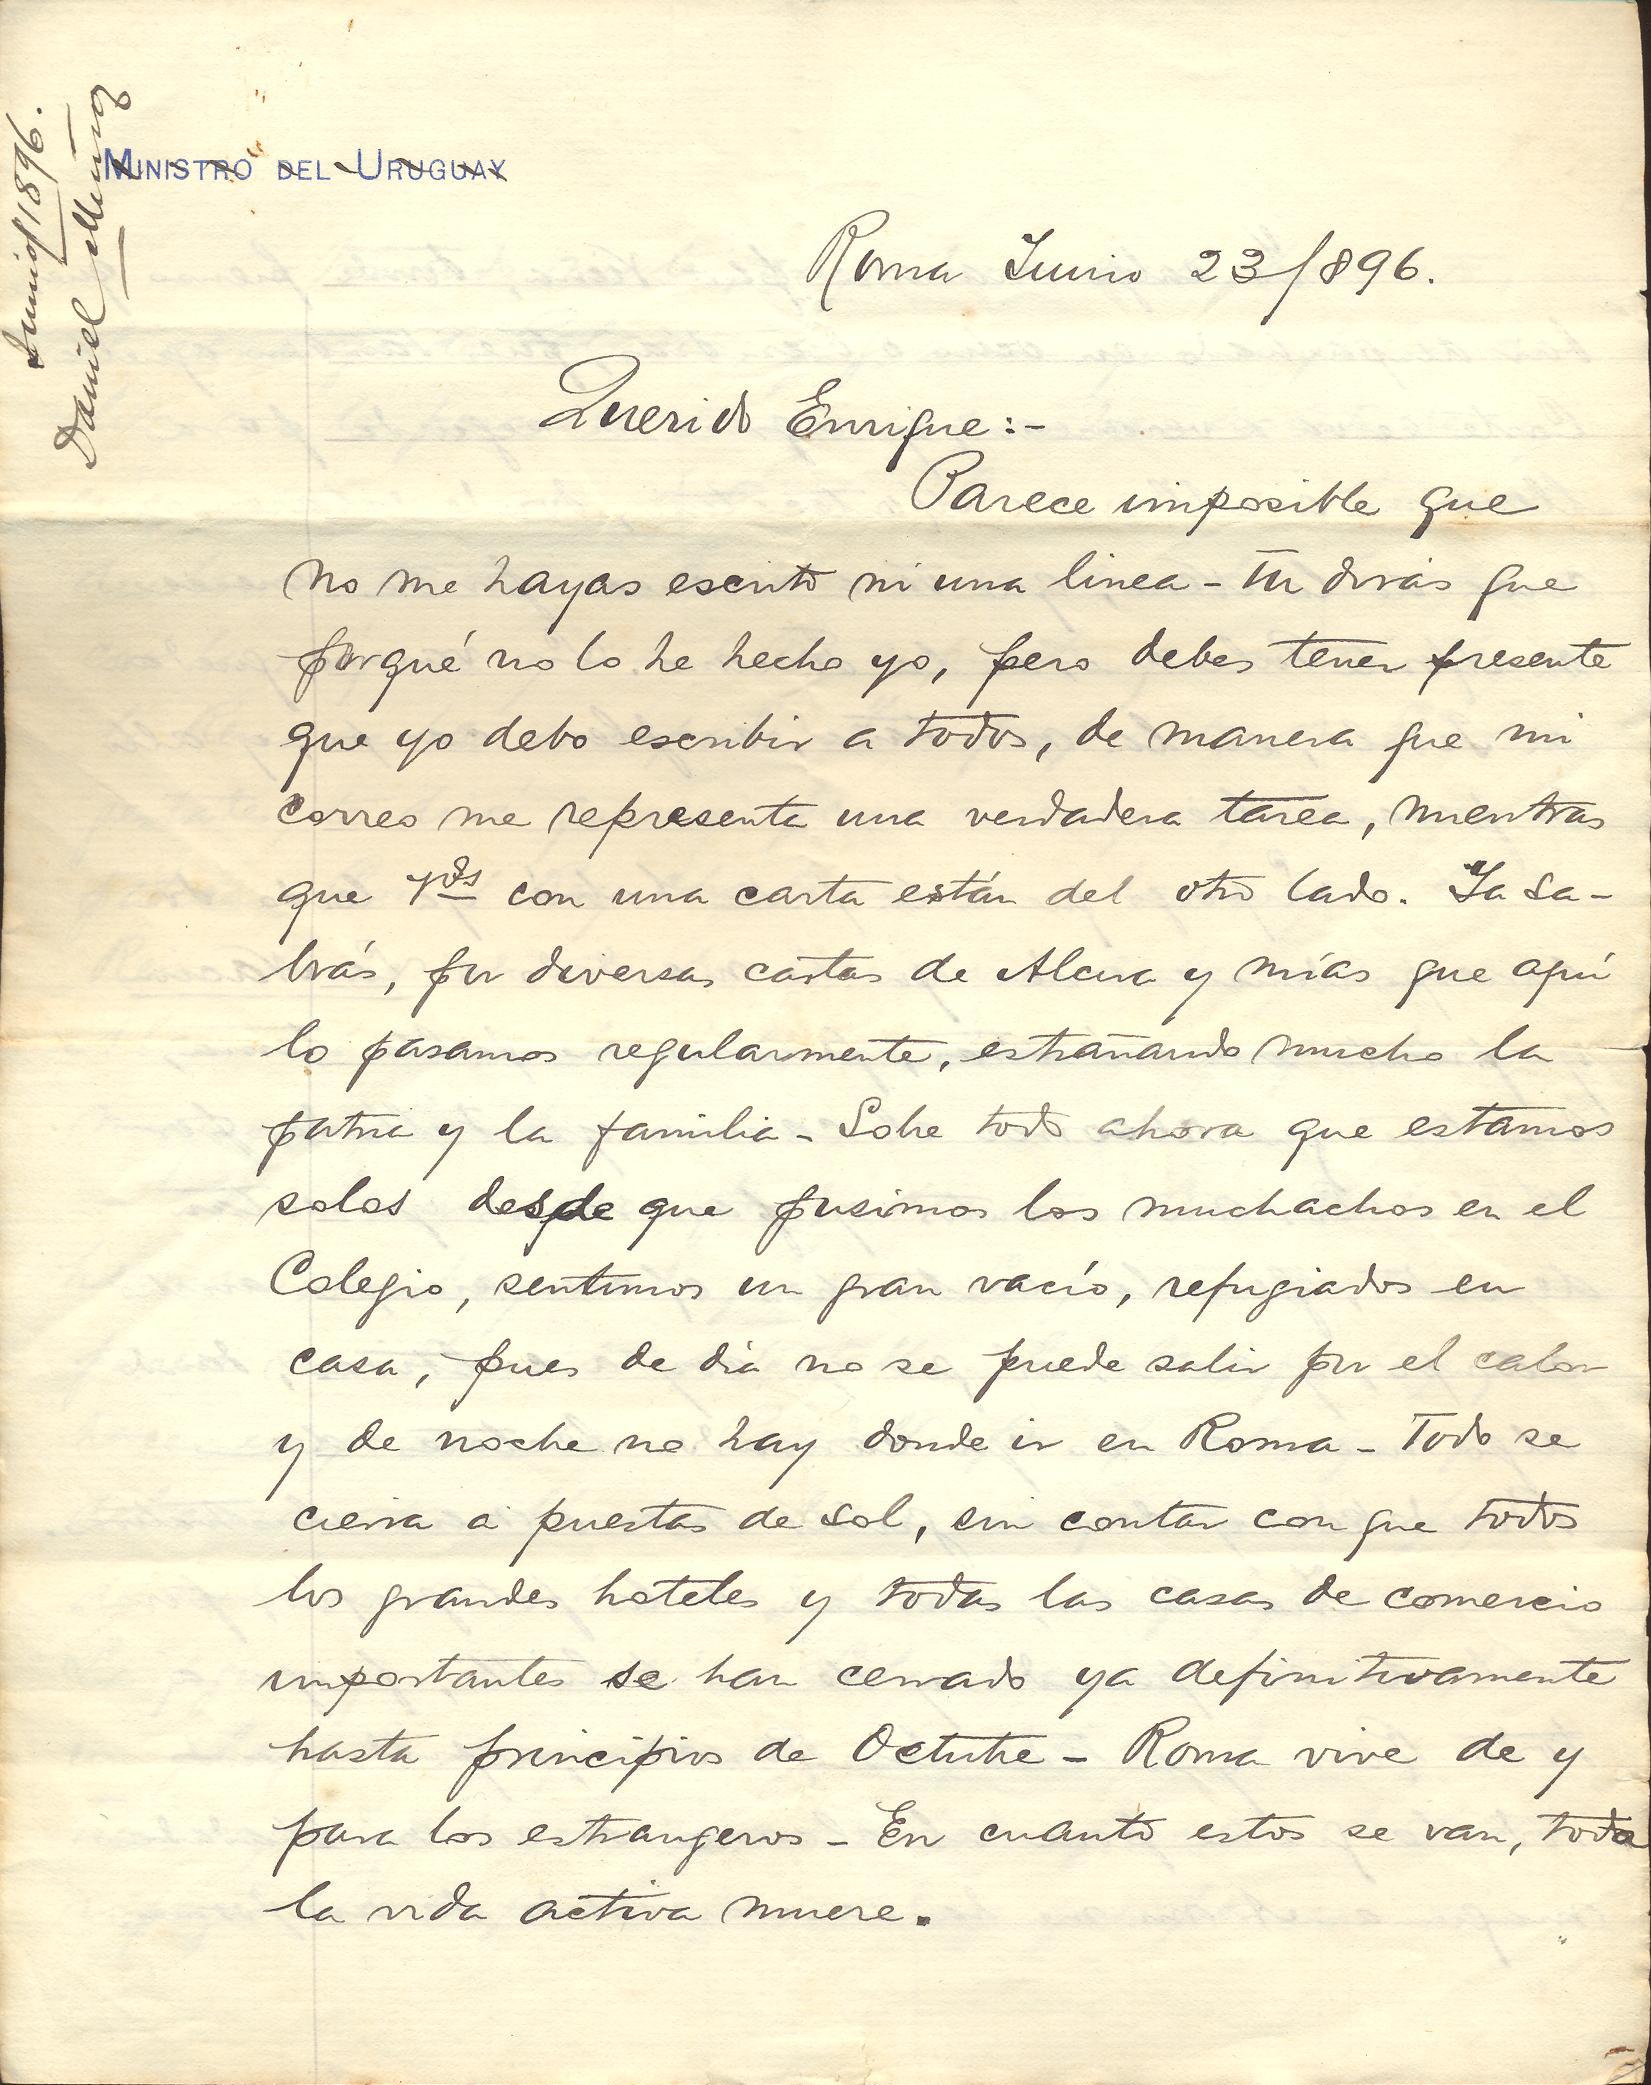 Junio/1896.
Daniel Muñoz
MINISTRO DEL URUGUAY
Roma Junio 23/896.
Querido Enrique:-
Parece imposible que
no me hayas escrito ni una linea - Tu dirás que
porqué no lo he hecho yo, pero debes tener presente
que yo debo escribir a todos, de manera que mi
correo me representa una verdadera tarea, mientras
que Vds con una carta están del otro lado. Ya sa-
brás, por diversas cartas de Alcira y mías que aquí
lo pasamos regularmente, estrañando mucho la
patria y la familia - Sobre todo ahora que estamos
solos desde que pusimos los muchachos en el
Colegio, sentimos un gran vacío, refugiados en
casa, pues de dia no se puede salir por el calor
y de noche no hay donde ir en Roma - Todo se
cierra a puestas de sol, sin contar con que todos
los grandes hoteles y todas las casas de comercio
importantes se han cerrado ya definitivamente
hasta principios de Octubre - Roma vive de y
para los estrangeros - En cuanto estos se van, toda
la vida activa muere.